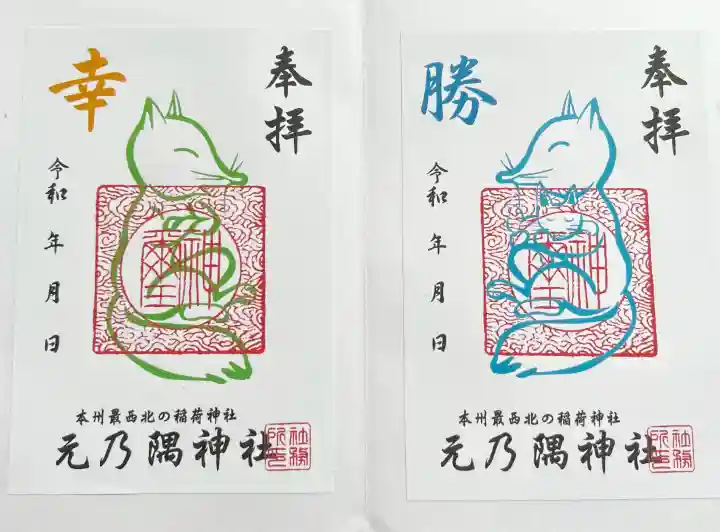 奉拝
幸
令和 年 月 日
本州最西北の稲荷神社
元乃隅神社
社務所印
奉拝
勝
令和 年 月 日
本州最西北の稲荷神社
元乃隅神社
社務所印